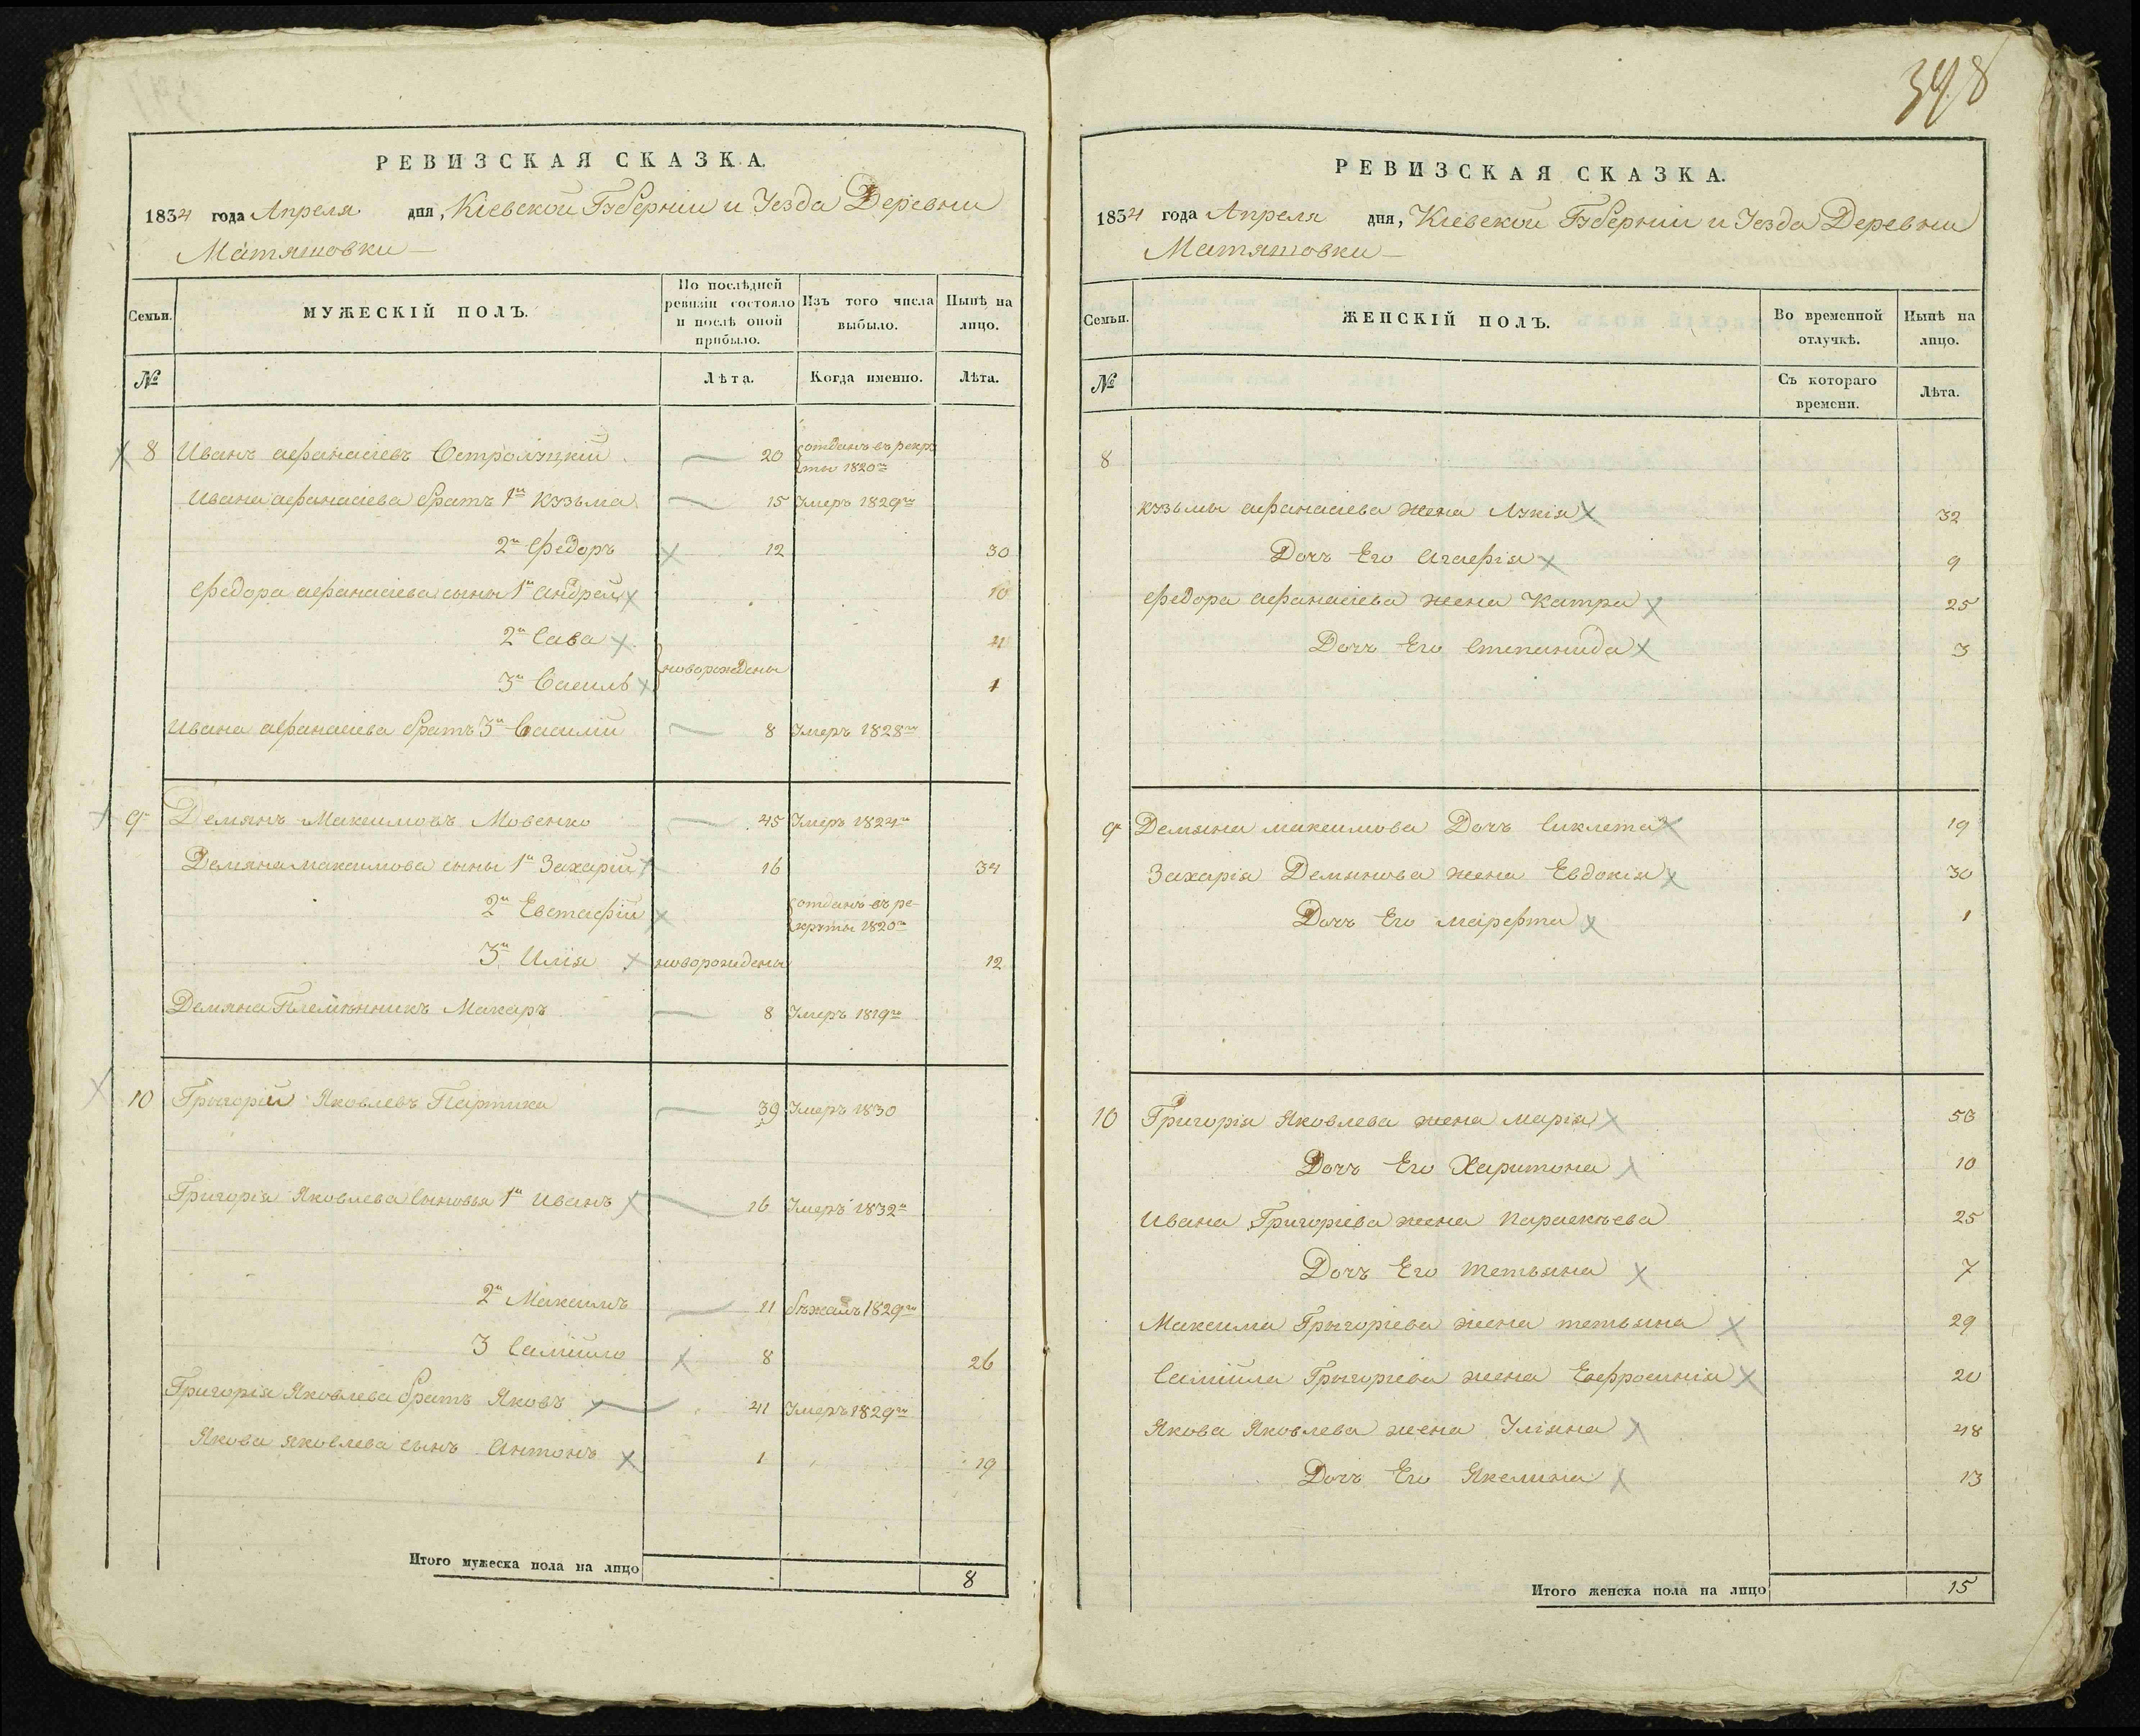 348
РЕВИЗСКАЯ СКАЗКА.
1834 года Апреля дня, Кіевской Губерніи и Уезда Деревни
Матяшовки
Семьи.
МУЖЕСКІЙ ПОЛЪ.
По послѣдней ревизіи состояло и послѣ оной прибыло.
Изъ того числа выбыло.
Нынѣ на лицо.
№
Лѣта.
Когда именно.
Лѣта.
8 Иванъ афанасіевъ Остролуцкій 20 отданъ въ рекруты 1820го
Ивана афанасіева братъ 1й Кузьма 15 Умеръ 1829го
2й Федоръ 12 30
Федора афанасіева сыны 1й андрей 10
2й Сава 4
3й Василь новорождены 1
Ивана афанасіева братъ 3й Василій 8 Умеръ 1828го
9 Демянъ Максимовъ Мовенко 45 Умеръ 1824го
Демяна максимова сыны 1й Захарій 16 34
2й Евстафій отданъ въ рекруты 1820го
3й Илія новорождены 12
Демяна Племѣнникъ Макаръ 8 Умеръ 1819го
10 Григорій Яковлевъ Партика 39 Умеръ 1830
Григорія Яковлева Сыновья 1й Иванъ 16 Умеръ 1832го
2й Максимъ 11 бѣжалъ 1829го
3 Самійло 8 26
Григорія Яковлева братъ Яковъ 41 Умеръ 1829го
Якова яковлева сынъ Антонъ 1 19
Итого мужеска пола на лицо 8
РЕВИЗСКАЯ СКАЗКА.
1834 года Апреля дня, Кіевской Губерніи и Уезда Деревни
Матяшовки
Семьи.
ЖЕНСКІЙ ПОЛЪ.
Во временной отлучкѣ.
Нынѣ на лицо.
№
Съ котораго времени.
Лѣта.
8
Кузьмы афанасіева жена Лукія 32
Дочь Его Агафія 9
Федора афанасіева жена Катра 25
Дочь Его Степанида 3
9 Демяна максимова Дочь Сиклета 19
Захарія Демянова жена Евдокія 30
Дочь Его марфта 1
10 Григорія Яковлева жена марія 53
Дочь Его Харитона 10
Ивана Григоріева жена Параскѣева 25
Дочь Его тетьяна 7
Максима Григоріева жена тетьяна 29
Самійла Григоріева жена Ефросинія 20
Якова Яковлева жена Уліяна 48
Дочь Его Якелина 13
Итого женска пола на лицо 15